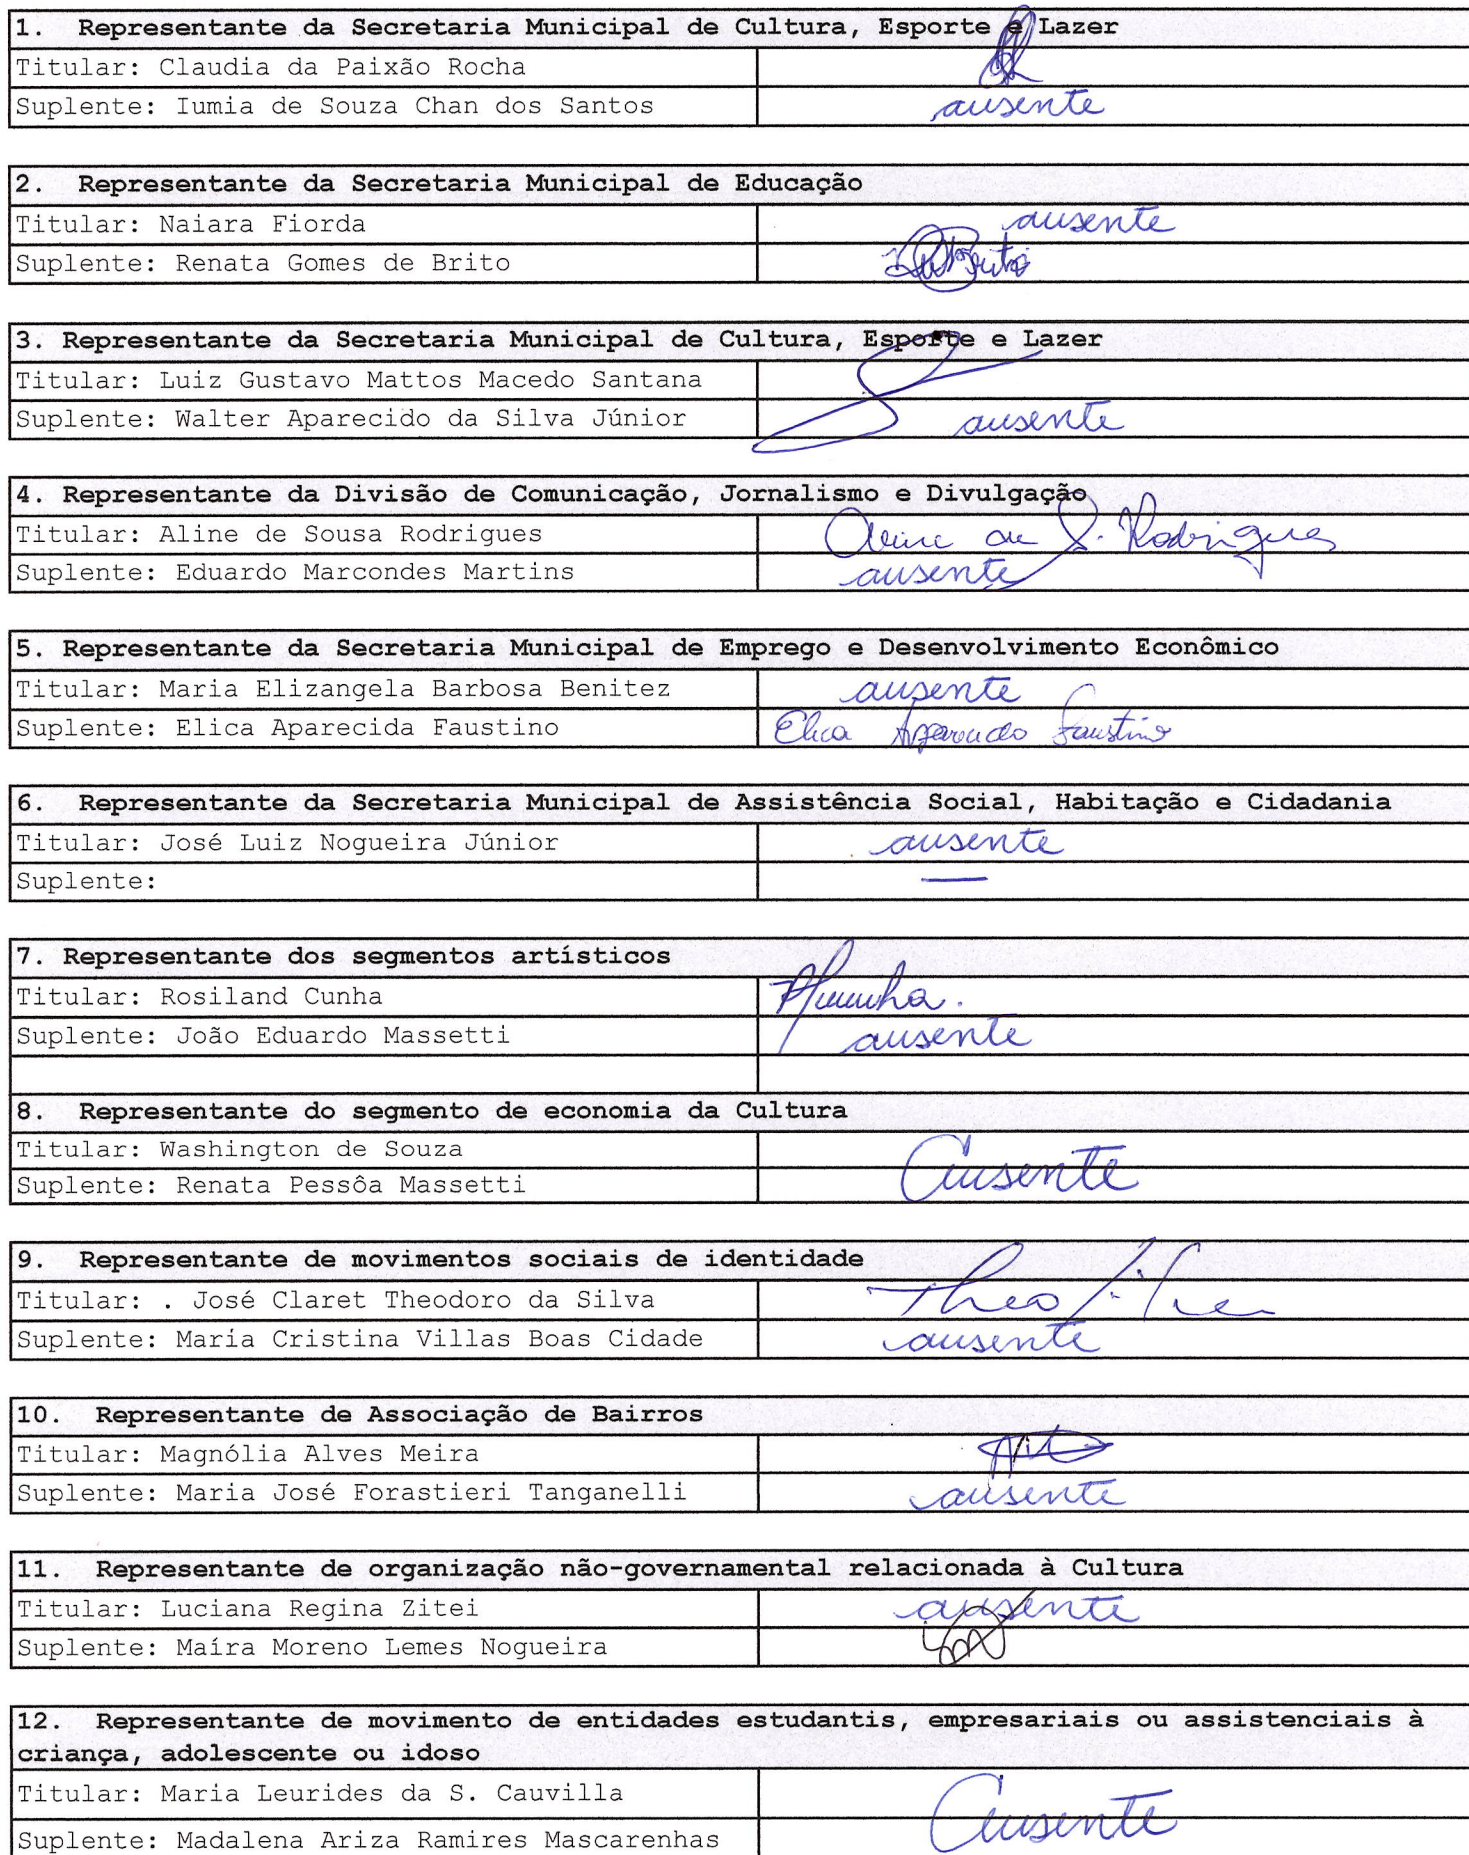 1. Representante da Secretaria Municipal de Cultura, Esporte e Lazer
Titular: Claudia da Paixão Rocha
Suplente: Iumia de Souza Chan dos Santos ausente
2. Representante da Secretaria Municipal de Educação
Titular: Naiara Fiorda ausente
Suplente: Renata Gomes de Brito Brito
3. Representante da Secretaria Municipal de Cultura, Esporte e Lazer
Titular: Luiz Gustavo Mattos Macedo Santana
Suplente: Walter Aparecido da Silva Júnior ausente
4. Representante da Divisão de Comunicação, Jornalismo e Divulgação
Titular: Aline de Sousa Rodrigues Aline de S. Rodrigues
Suplente: Eduardo Marcondes Martins ausente
5. Representante da Secretaria Municipal de Emprego e Desenvolvimento Econômico
Titular: Maria Elizangela Barbosa Benitez ausente
Suplente: Elica Aparecida Faustino Elica Aparecida Faustino
6. Representante da Secretaria Municipal de Assistência Social, Habitação e Cidadania
Titular: José Luiz Nogueira Júnior ausente
Suplente: —
7. Representante dos segmentos artísticos
Titular: Rosiland Cunha
Suplente: João Eduardo Massetti ausente
8. Representante do segmento de economia da Cultura
Titular: Washington de Souza
Suplente: Renata Pessôa Massetti Ausente
9. Representante de movimentos sociais de identidade
Titular: . José Claret Theodoro da Silva Theo
Suplente: Maria Cristina Villas Boas Cidade ausente
10. Representante de Associação de Bairros
Titular: Magnólia Alves Meira
Suplente: Maria José Forastieri Tanganelli ausente
11. Representante de organização não-governamental relacionada à Cultura
Titular: Luciana Regina Zitei ausente
Suplente: Maíra Moreno Lemes Nogueira
12. Representante de movimento de entidades estudantis, empresariais ou assistenciais à
criança, adolescente ou idoso
Titular: Maria Leurides da S. Cauvilla
Suplente: Madalena Ariza Ramires Mascarenhas Ausente